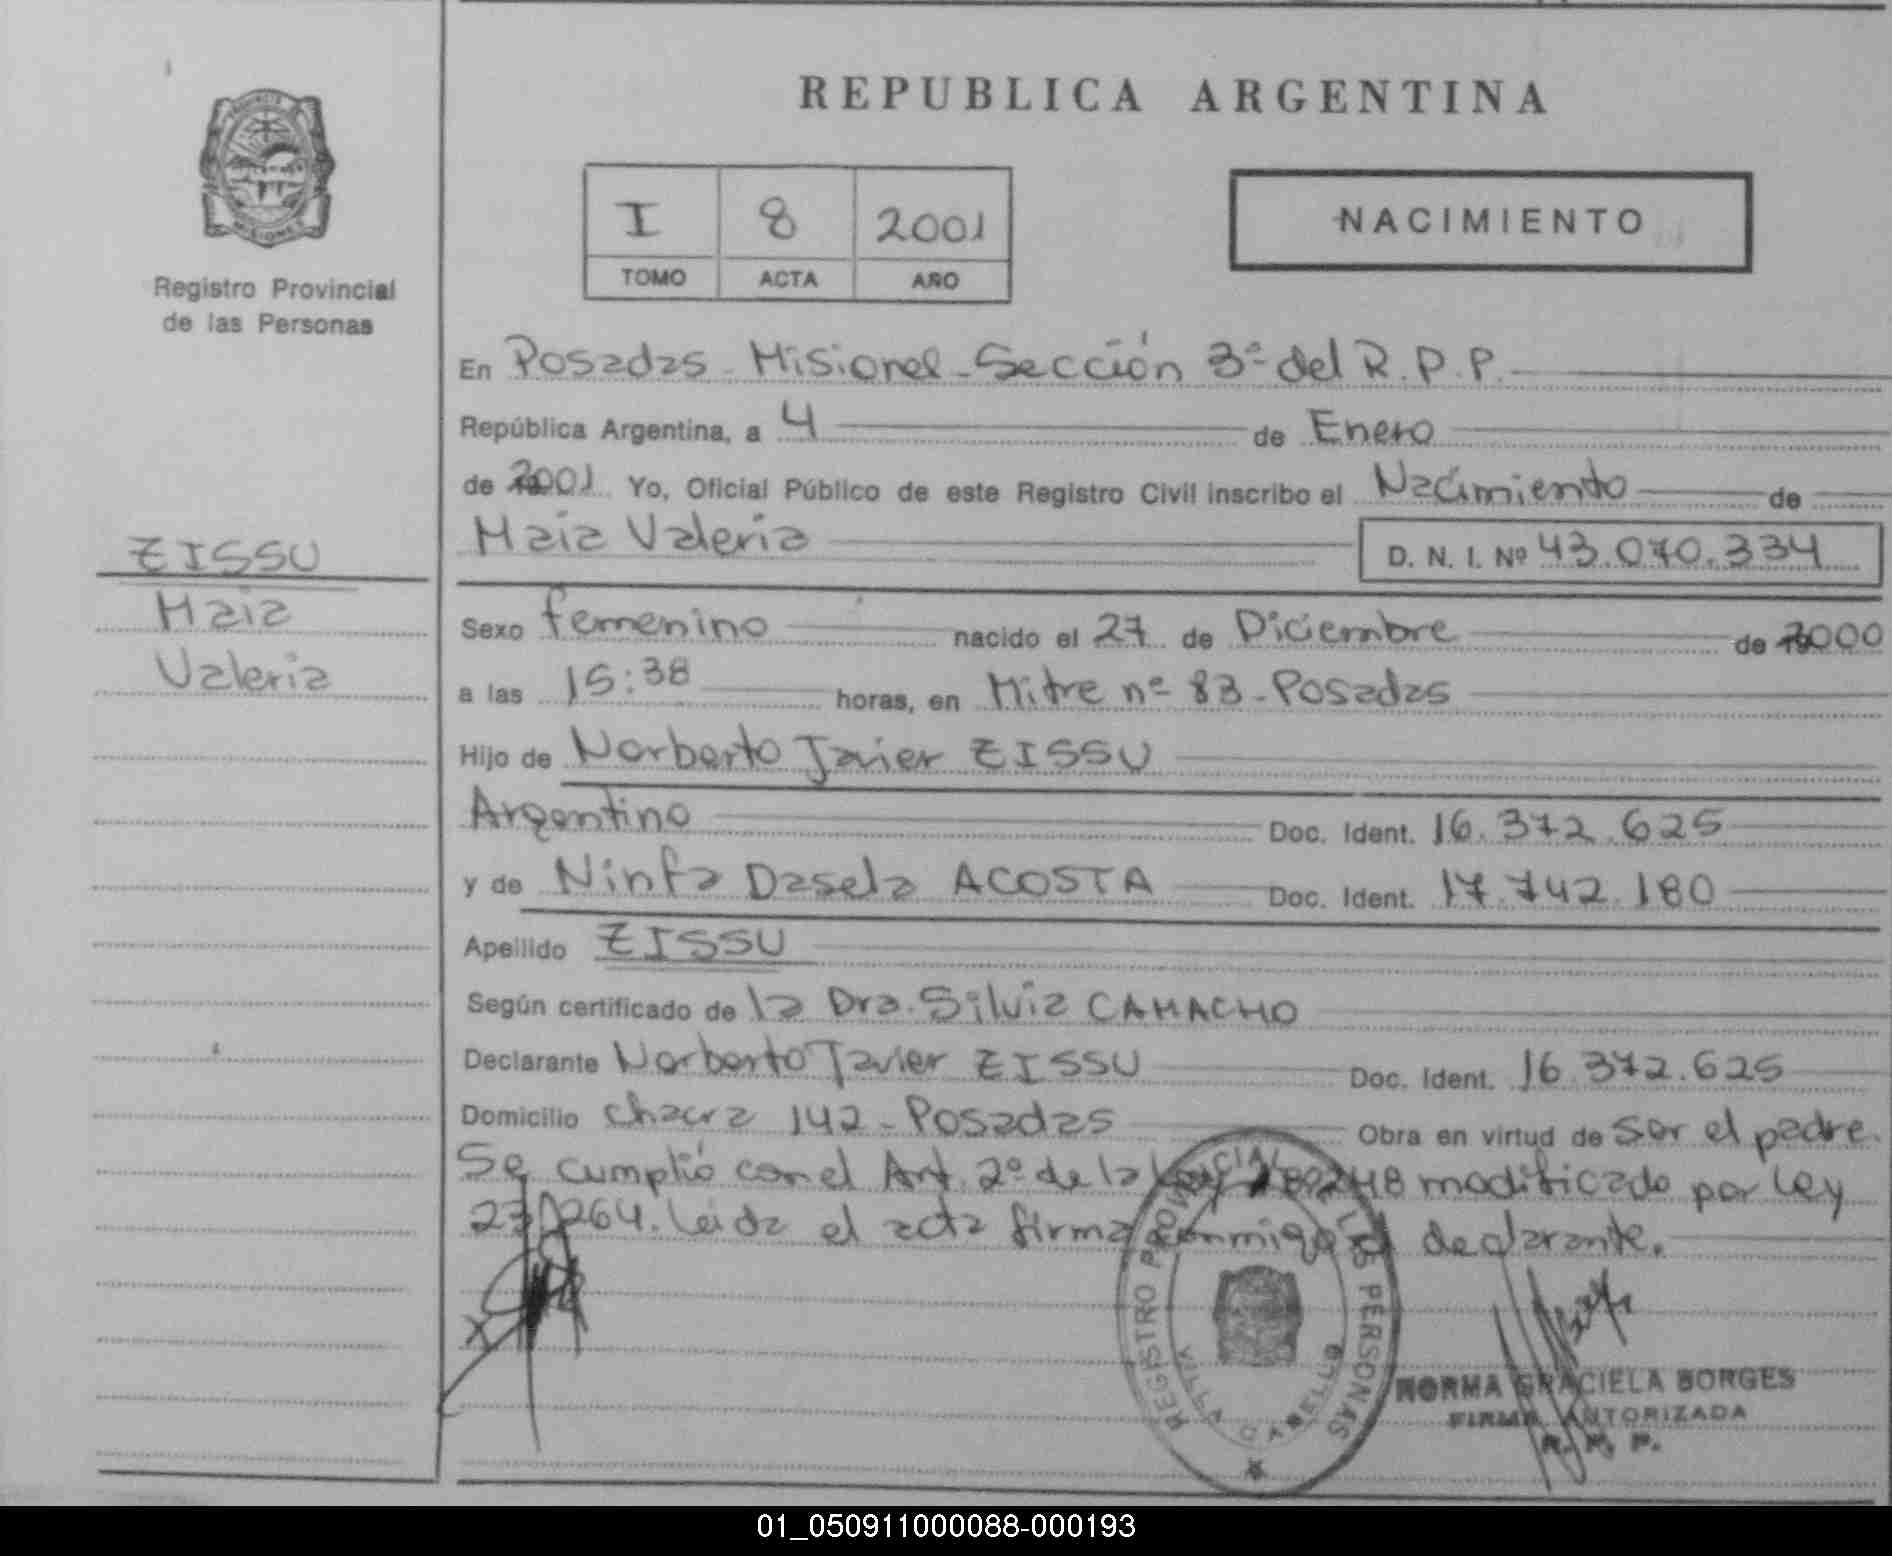 REPUBLICA ARGENTINA
MISIONES
Registro Provincial
de las Personas
I 8 2001
TOMO ACTA AÑO
NACIMIENTO
En Posadas - Misiones - Sección 3º del R. P. P.
República Argentina, a 4 de Enero
de 2001 Yo, Oficial Público de este Registro Civil inscribo el Nacimiento de
Maia Valeria D. N. I. Nº 43.070.334
ZISSU
Maia
Valeria
Sexo femenino nacido el 27 de Diciembre de 2000
a las 15:38 horas, en Mitre nº 83 - Posadas
Hijo de Norberto Javier ZISSU
Argentino Doc. Ident. 16.372.625
y de Ninfa Dasela ACOSTA Doc. Ident. 17.742.180
Apellido ZISSU
Según certificado de la Dra. Silvia CAMACHO
Declarante Norberto Javier ZISSU Doc. Ident. 16.372.625
Domicilio Chacra 142 - Posadas Obra en virtud de ser el padre.
Se cumplió con el Art. 2º de la Ley 18248 modificado por Ley
23.264. Leida el acta firma conmigo el declarante.
REGISTRO PROVINCIAL DE LAS PERSONAS
VILLA CABELLO
NORMA GRACIELA BORGES
FIRMA AUTORIZADA
R. P. P.
01_050911000088-000193